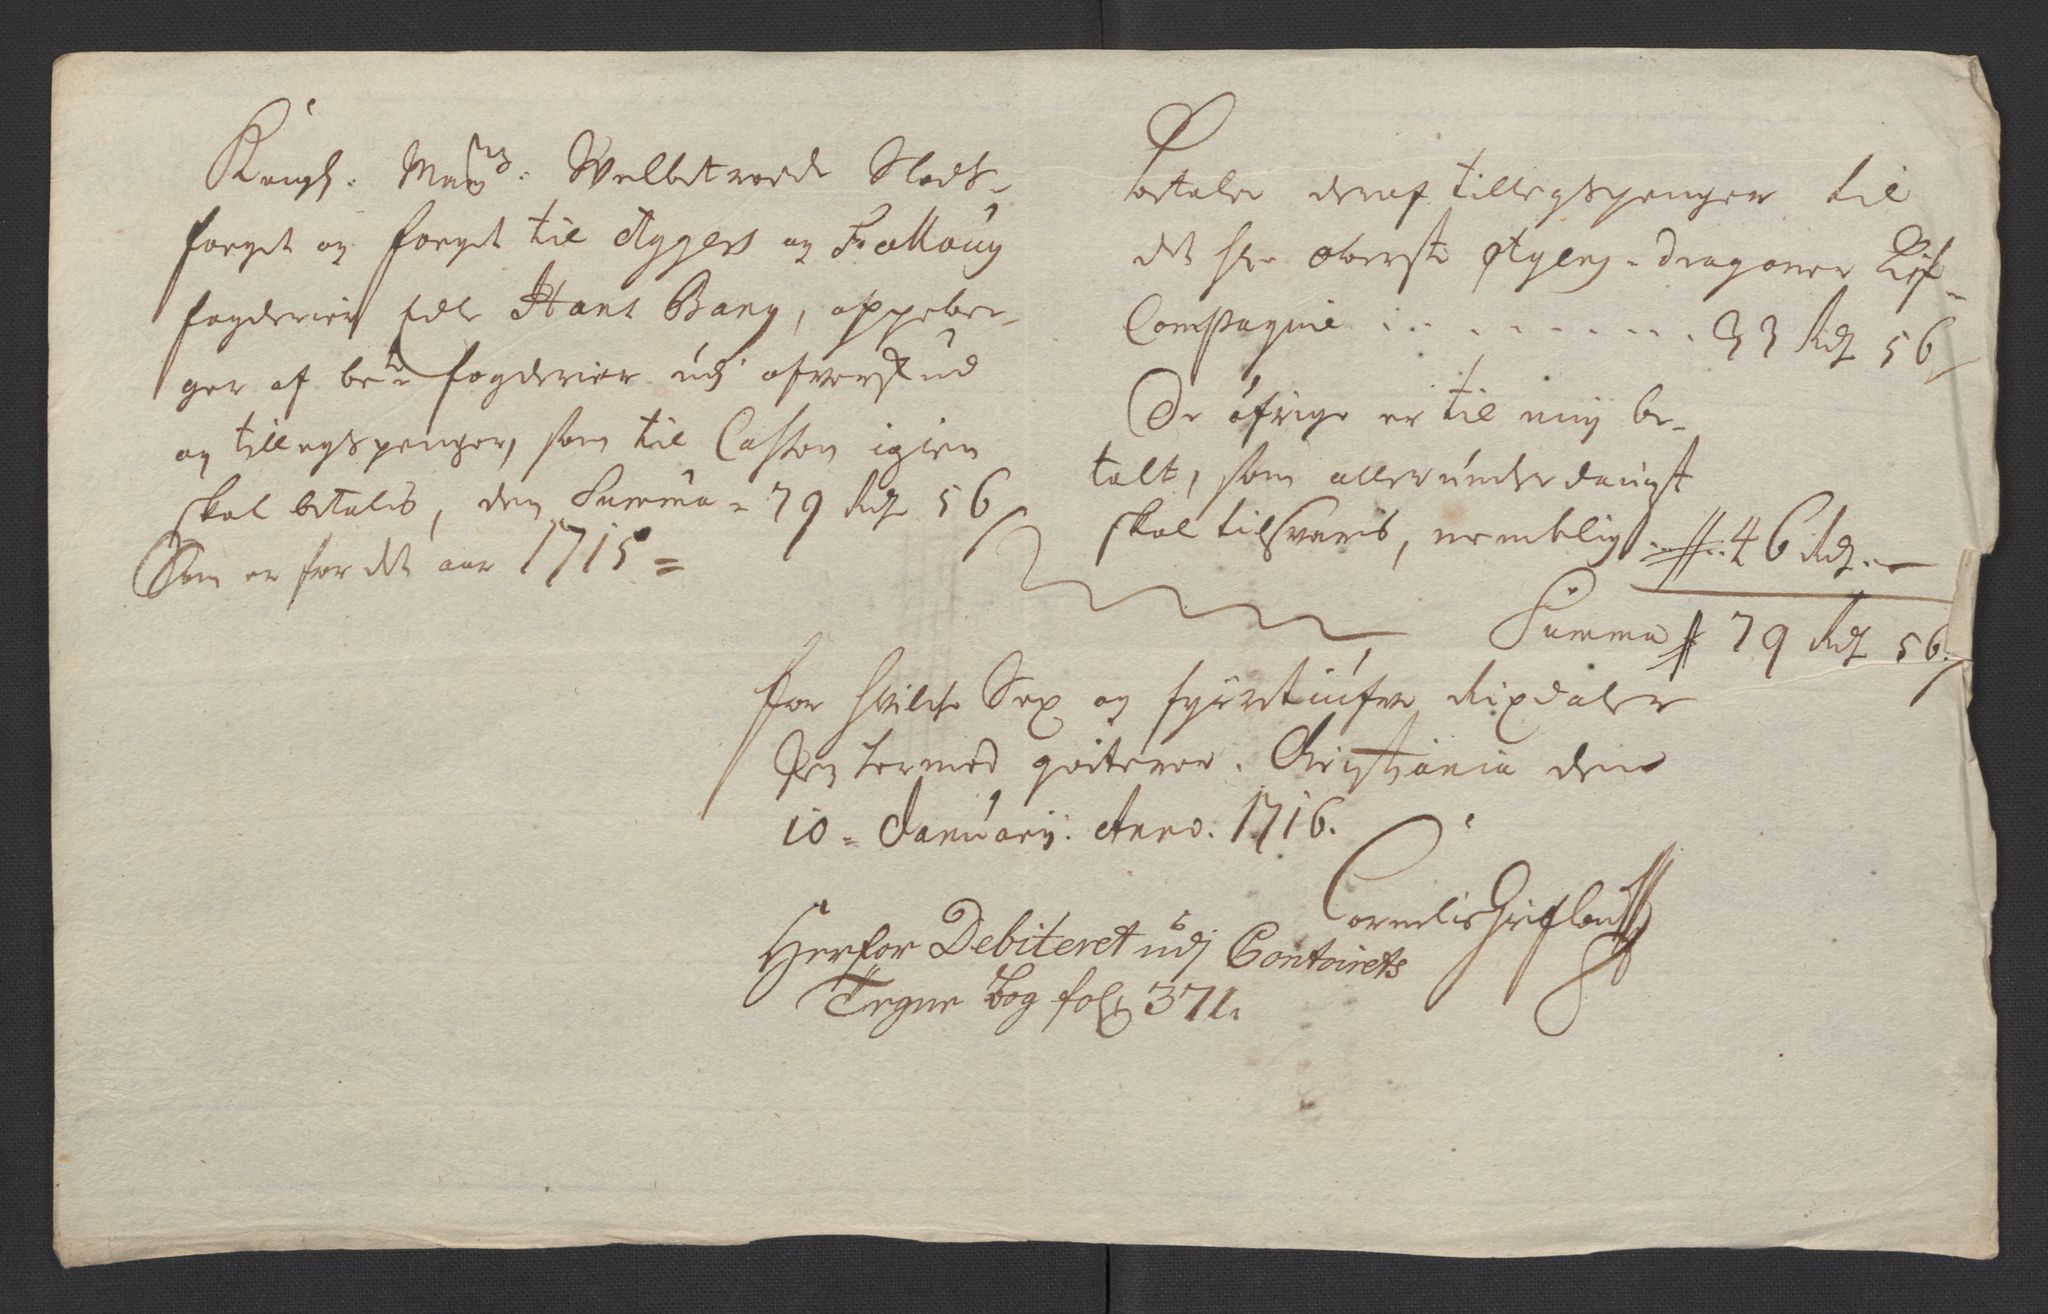 Kongl. Mayts. Velbetroede Slods-
foeget og foeget til Aggers og Folloug
fogderier Edle Hans Bang, oppeber-
ger af bete fogderier udj ofverskud
og tillegspenger, som til Cassen igien
skal betales, den Summa = 79 Rdr 56 s
Som er for det aar 1715 =
betaler deraf tillegspenger til
det hr. oberste dragoner Lif-
Compagnie . . . . . . . . . 33 Rdr 56 s
De öfrige er til mig be-
talt, som allerunderdanigst
skal tilsvaris, nembelig . . 46 Rdr. —
Summa 79 Rdr 56 s
for hvilche Sex og fyretiufve Rixdaler
Jeg hermed qviterer. Christiania den
10 = Januarij. Anno. 1716.
Cornelis
Herfor Debiteret udj Contoirets
Tegne bog fol: 371.